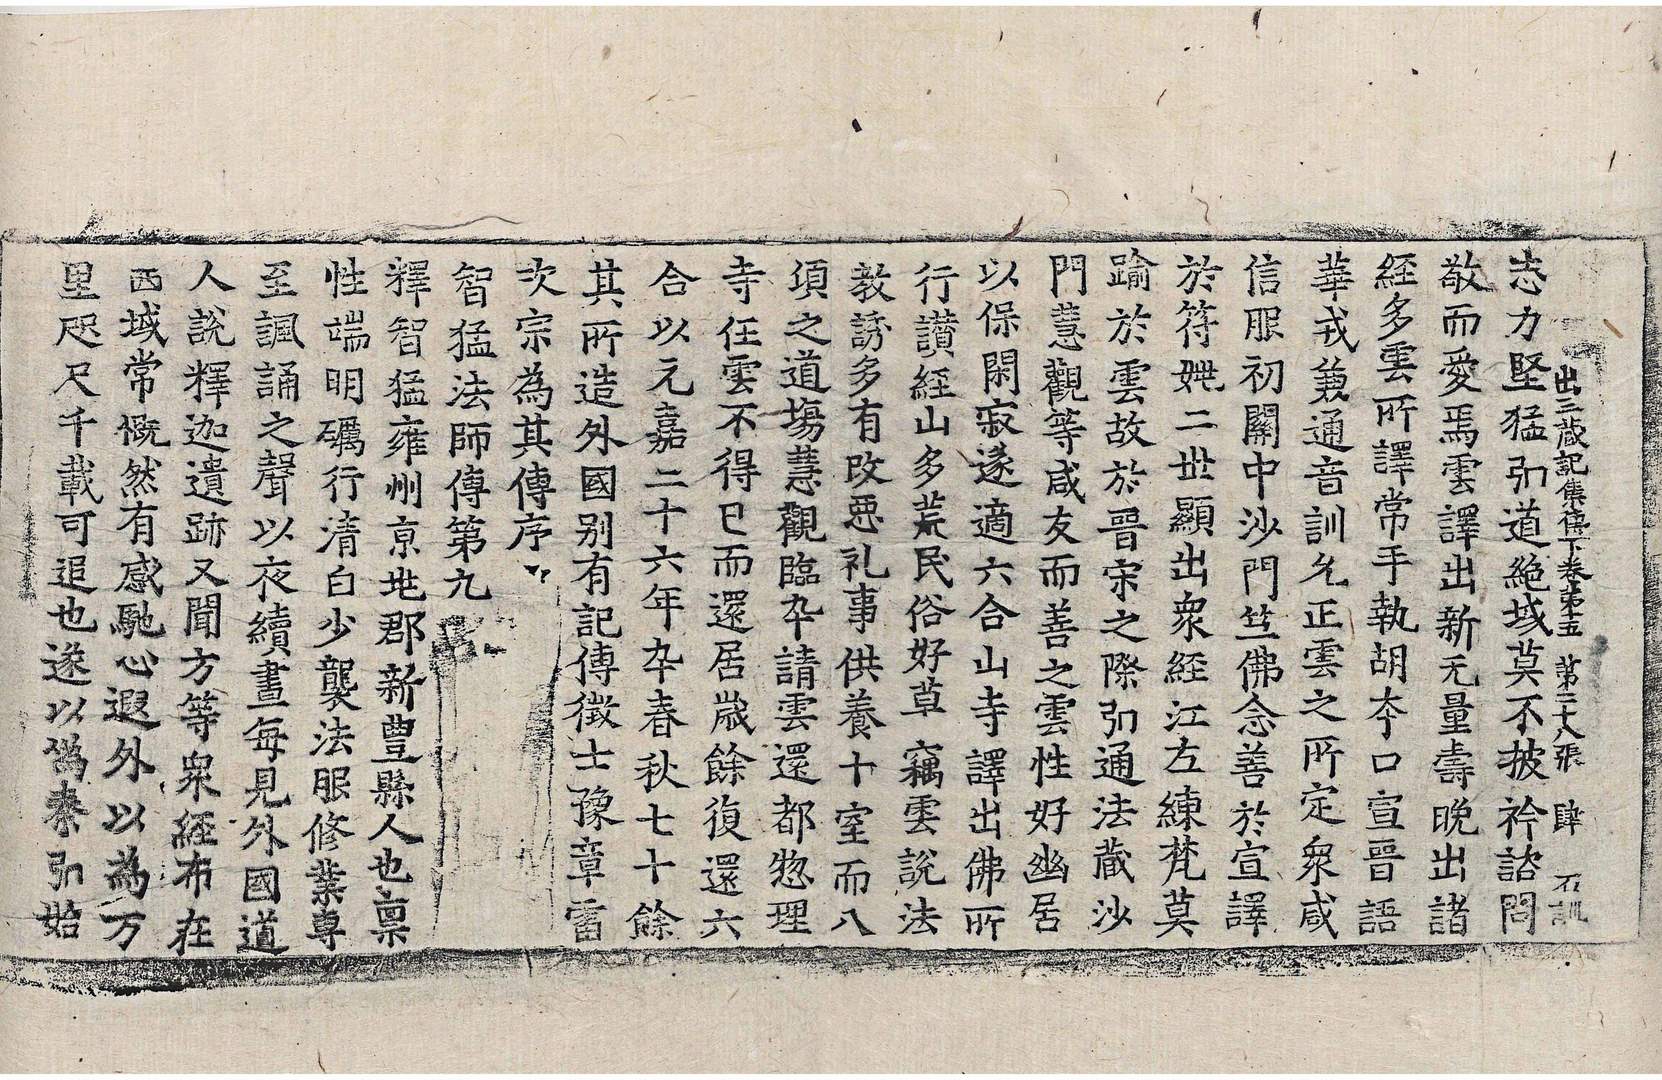 出三藏記集傳下卷第十五　第二十八張　肆　石訓
志力堅猛弘道絶域莫不披衿諮問
敬而愛焉雲譯出新无量壽晚出諸
經多雲所譯常手執胡夲口宣晉語
華戎兼通音訓允正雲之所定衆咸
信服初關中沙門竺佛念善於宣譯
於符姚二世顯出衆經江左練梵莫
踰於雲故於晉宋之際弘通法藏沙
門慧觀等咸友而善之雲性好幽居
以保閑寂遂適六合山寺譯出佛所
行讃經山多荒民俗好草竊雲說法
教誘多有改惡礼事供養十室而八
項之道塲慧觀臨卒請雲還都惣理
寺任雲不得已而還居歲餘復還六
合以元嘉二十六年卒春秋七十餘
其所造外國别有記傳徵士豫章雷
次宗為其傳序
智猛法師傳第九
釋智猛雍州京兆郡新豐縣人也稟
性端明礪行清白少襲法服修業專
至諷誦之聲以夜續晝每見外國道
人說釋迦遺跡又聞方等衆經布在
西域常慨然有感馳心遐外以為万
里咫尺千載可追也遂以僞秦弘始